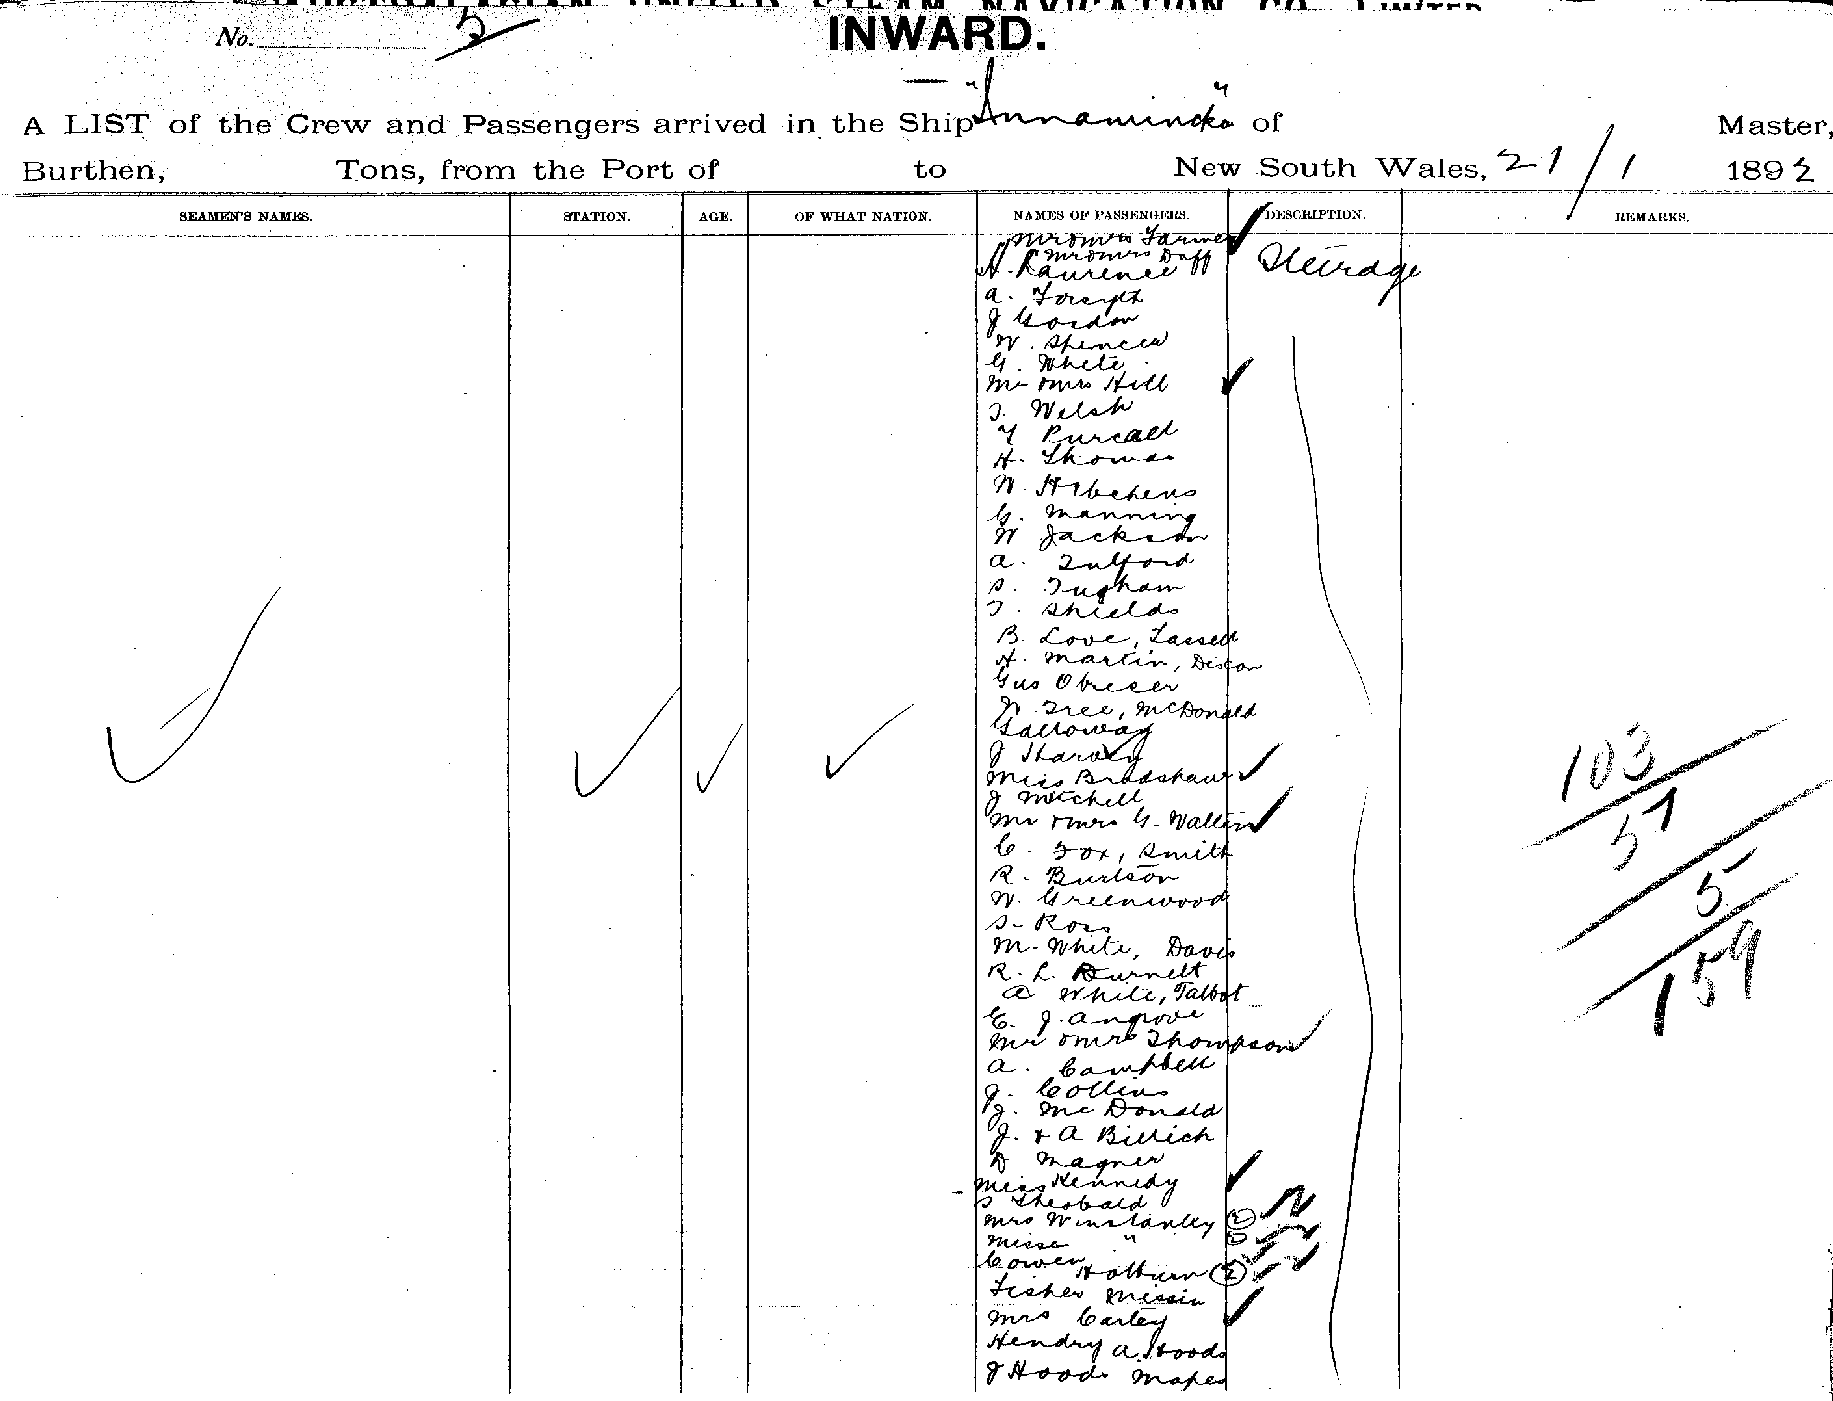 UNITED STEAM NAVIGATION CO. LIMITED
No. 5
INWARD.
A LIST of the Crew and Passengers arrived in the Ship "Innamincka" of Master,
Burthen, Tons, from the Port of to New South Wales, 21/1 1892
SEAMEN'S NAMES. STATION. AGE. OF WHAT NATION. NAMES OF PASSENGERS. DESCRIPTION. REMARKS.
Mr & Mrs Farmer
Mr & Mrs Duff
H. Laurence Steerage
A. Forsyth
J Gordon
W. Spencer
G. White
Mr & Mrs Hill
T. Welsh
T Purcell
H. Thomas
W. Hitchens
G. Manning
W Jackson
A. Fulford
S. Fugham
T. Shields
B. Love, Tassell
H. Martin, Deacon
Gus
W Tree, McDonald
Galloway
J Harvey
Miss Bradshaw
J Mitchell
Mr & Mrs G. Wallen
C. Fox, Smith
R. Burtson
W. Greenwood
S. Ross
M. White, Davis
R. L. Burnett
A White, Talbot
C. J. Angrove
Mr & Mrs Thompson
A. Campbell
J. Collins
J. McDonald
J. & A Billich
D Magner
Miss Kennedy
S Theobald
Mrs Winstanley (2)
Misses " (2)
Cowen
Holburn (2)
Fisher Missin
Mrs Carley
Hendry A. Hoods
J Hoods Mapes
103
51
5
159